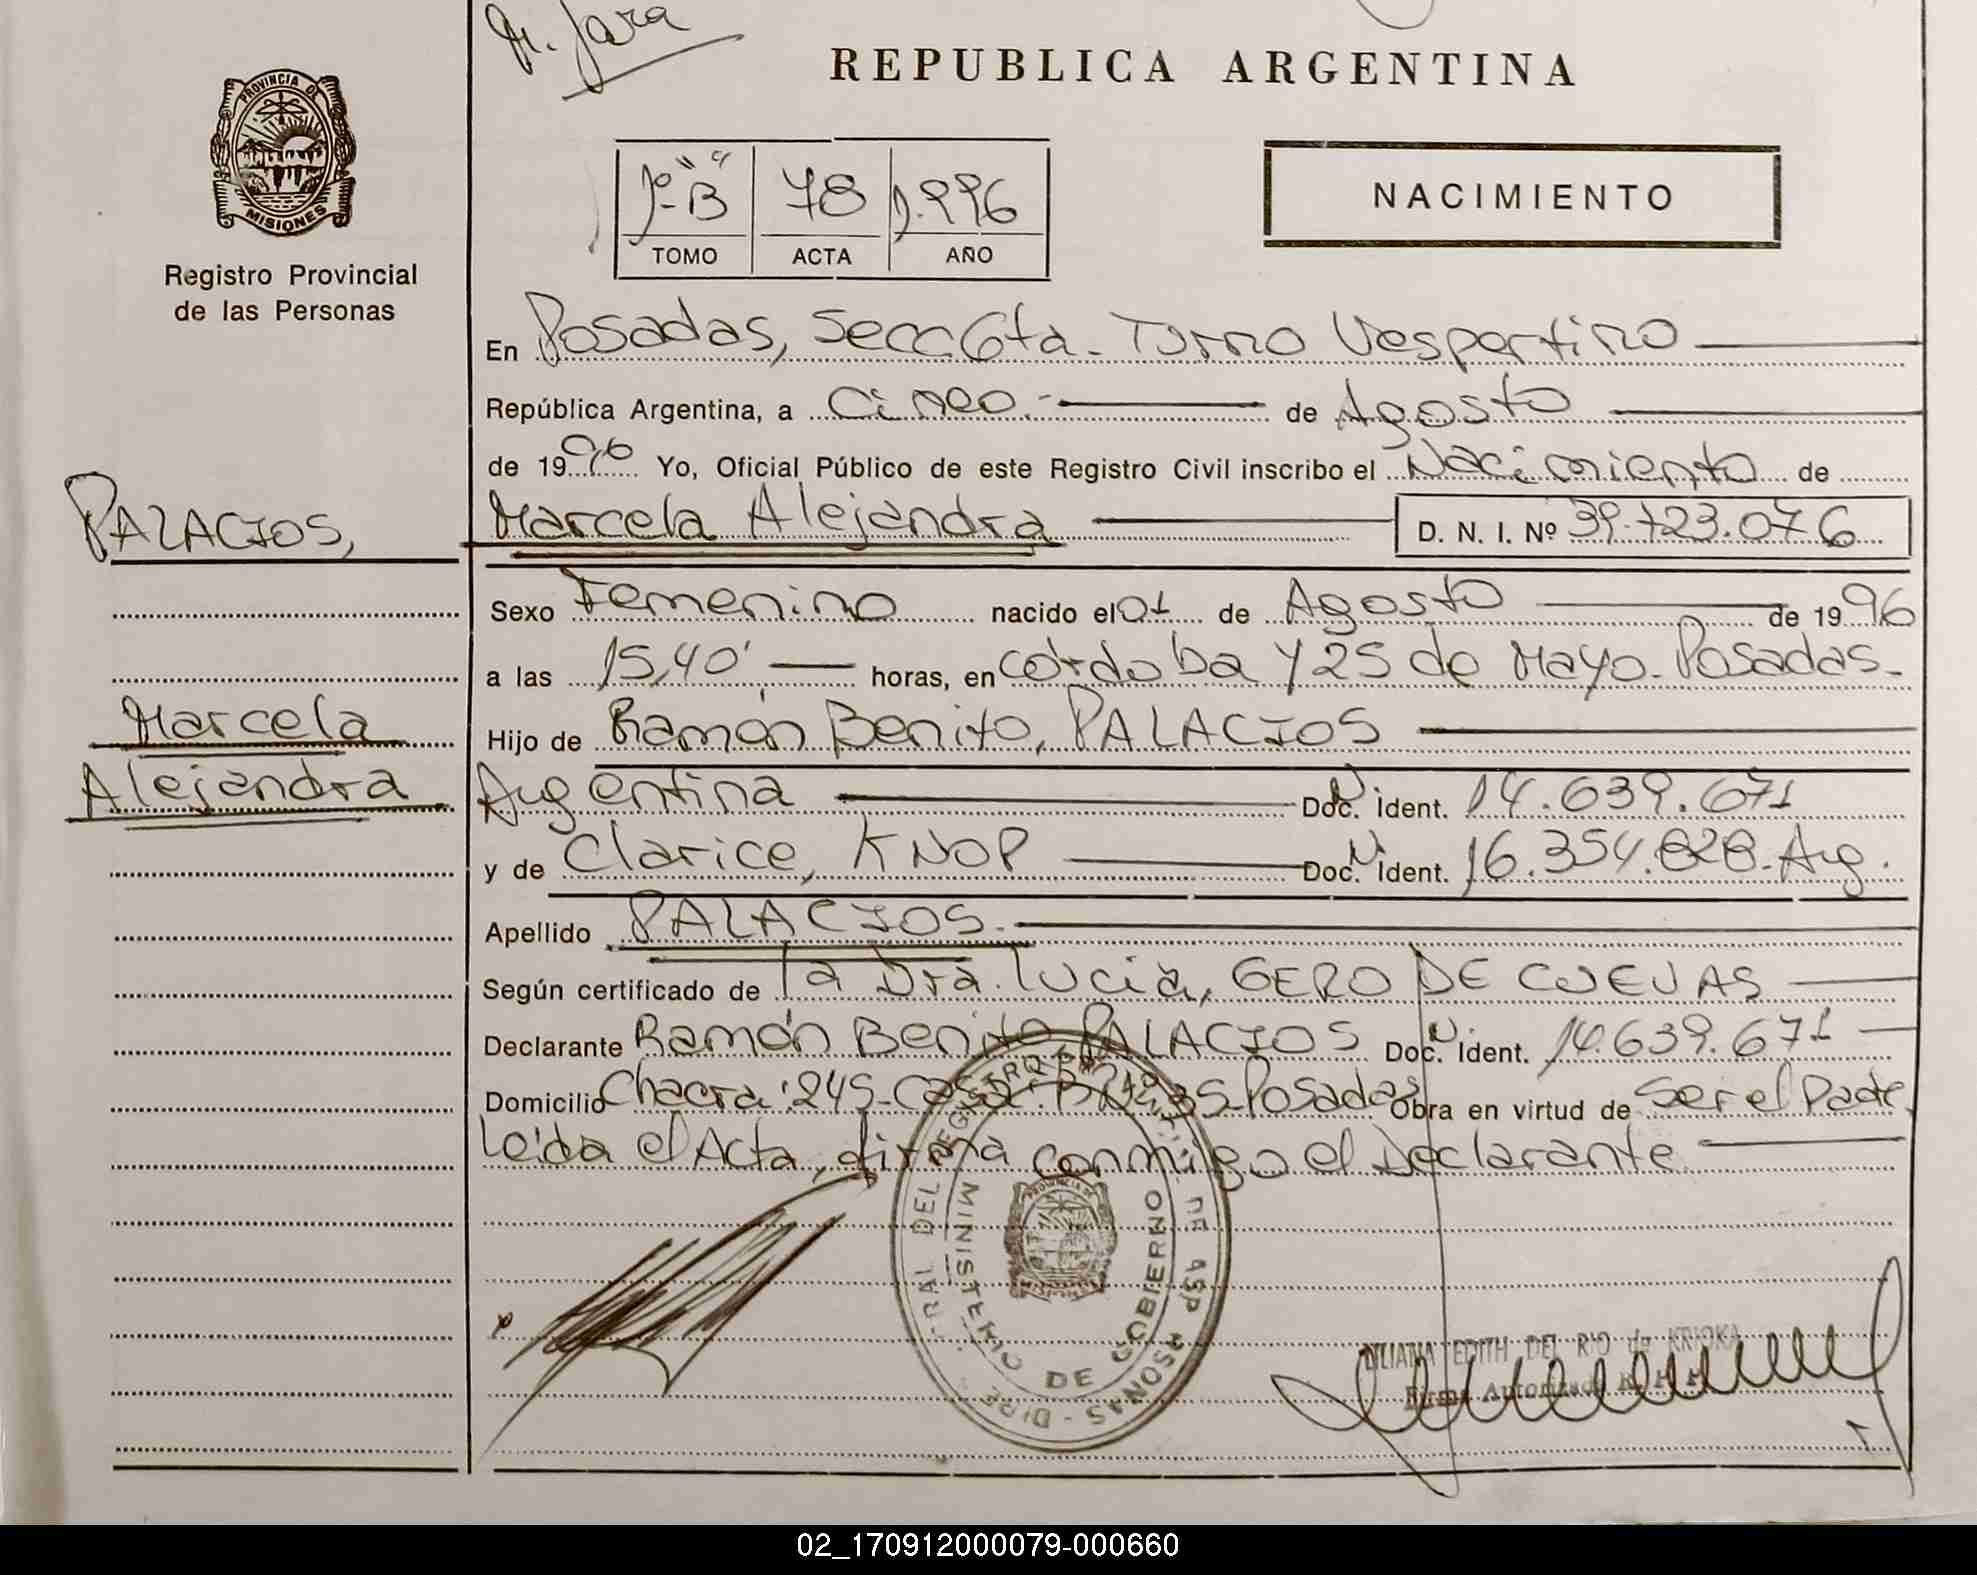 M. Jara
REPUBLICA ARGENTINA
PROVINCIA DE
MISIONES
Registro Provincial
de las Personas
1º "B" 78 1.996
TOMO ACTA AÑO
NACIMIENTO
En Posadas, Secc. 6ta. Turno Vespertino
República Argentina, a Cinco.- de Agosto
de 1996 Yo, Oficial Público de este Registro Civil inscribo el Nacimiento de
PALACIOS,
Marcela Alejandra D. N. I. Nº 39.723.076
Sexo Femenino nacido el 01 de Agosto de 1996
a las 15,40' horas, en Córdoba y 25 de Mayo. Posadas.
Marcela
Hijo de Ramón Benito, PALACIOS
Alejandra
Argentina Doc. Ident. 14.639.671
y de Clarice, KNOP Doc. Ident. 16.354.828-Arg.
Apellido PALACIOS.
Según certificado de la Dra. Lucia, GERO DE CUEVAS
Declarante Ramón Benito PALACIOS Doc. Ident. 14.639.671
Domicilio Chacra: 245- Posadas Obra en virtud de Ser el Padre.
Leída el Acta, firma conmigo el Declarante
MINISTERIO DE GOBIERNO
PROVINCIA DE
MISIONES
LILIANA EDITH DEL RIO de KRIOKA
Firma Autorizada
02_170912000079-000660